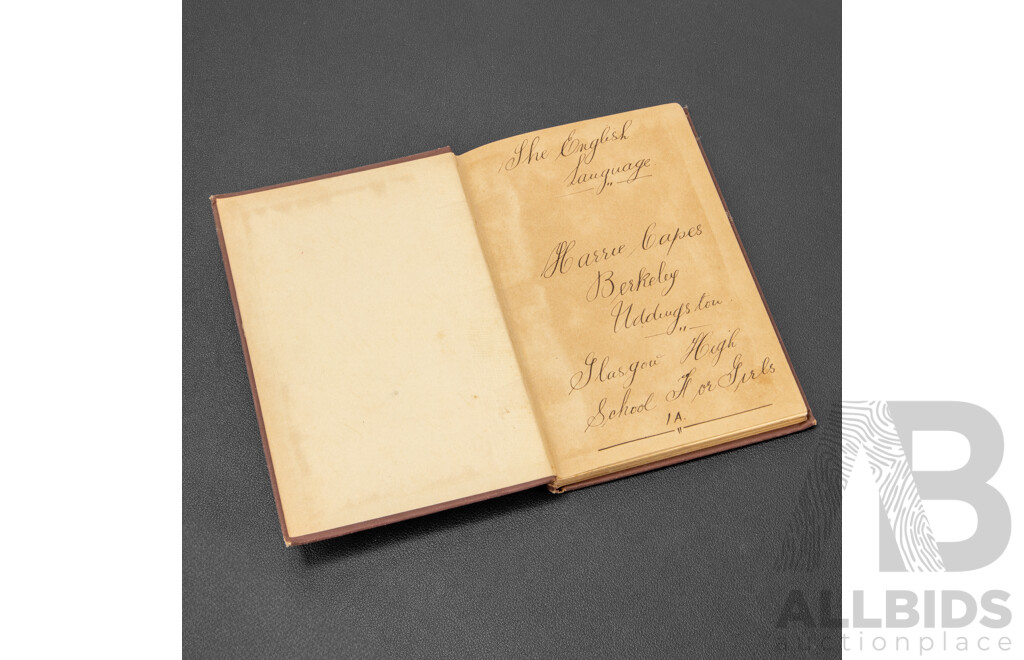 The English
Language
Harrie Capes
Berkeley
Uddingston
Glasgow High
School For Girls
1A.
AB
ALLBIDS
auctionplace